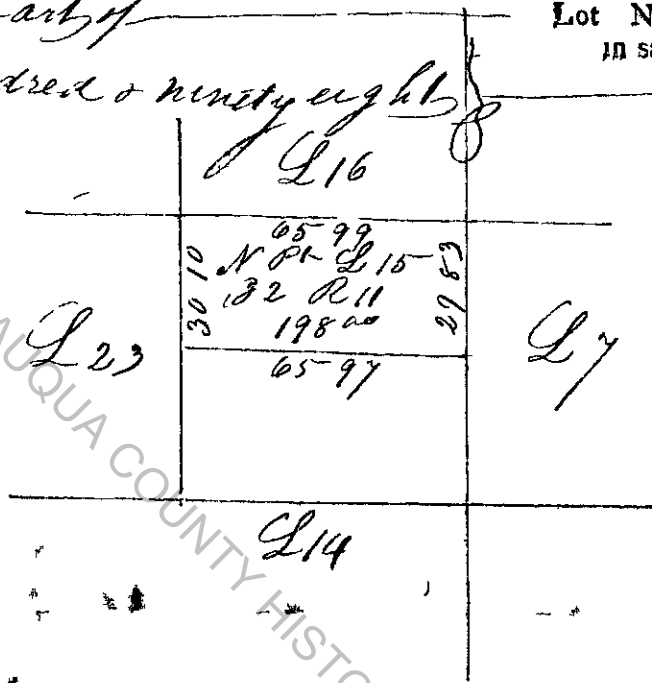 art of Lot N
in sa
dred & ninety eight
L 16
65 99
N Pt L 15
T2 R 11
198 ao
30 10
29 83
65 97
L 23
L 7
L 14
AUQUA COUNTY HISTO